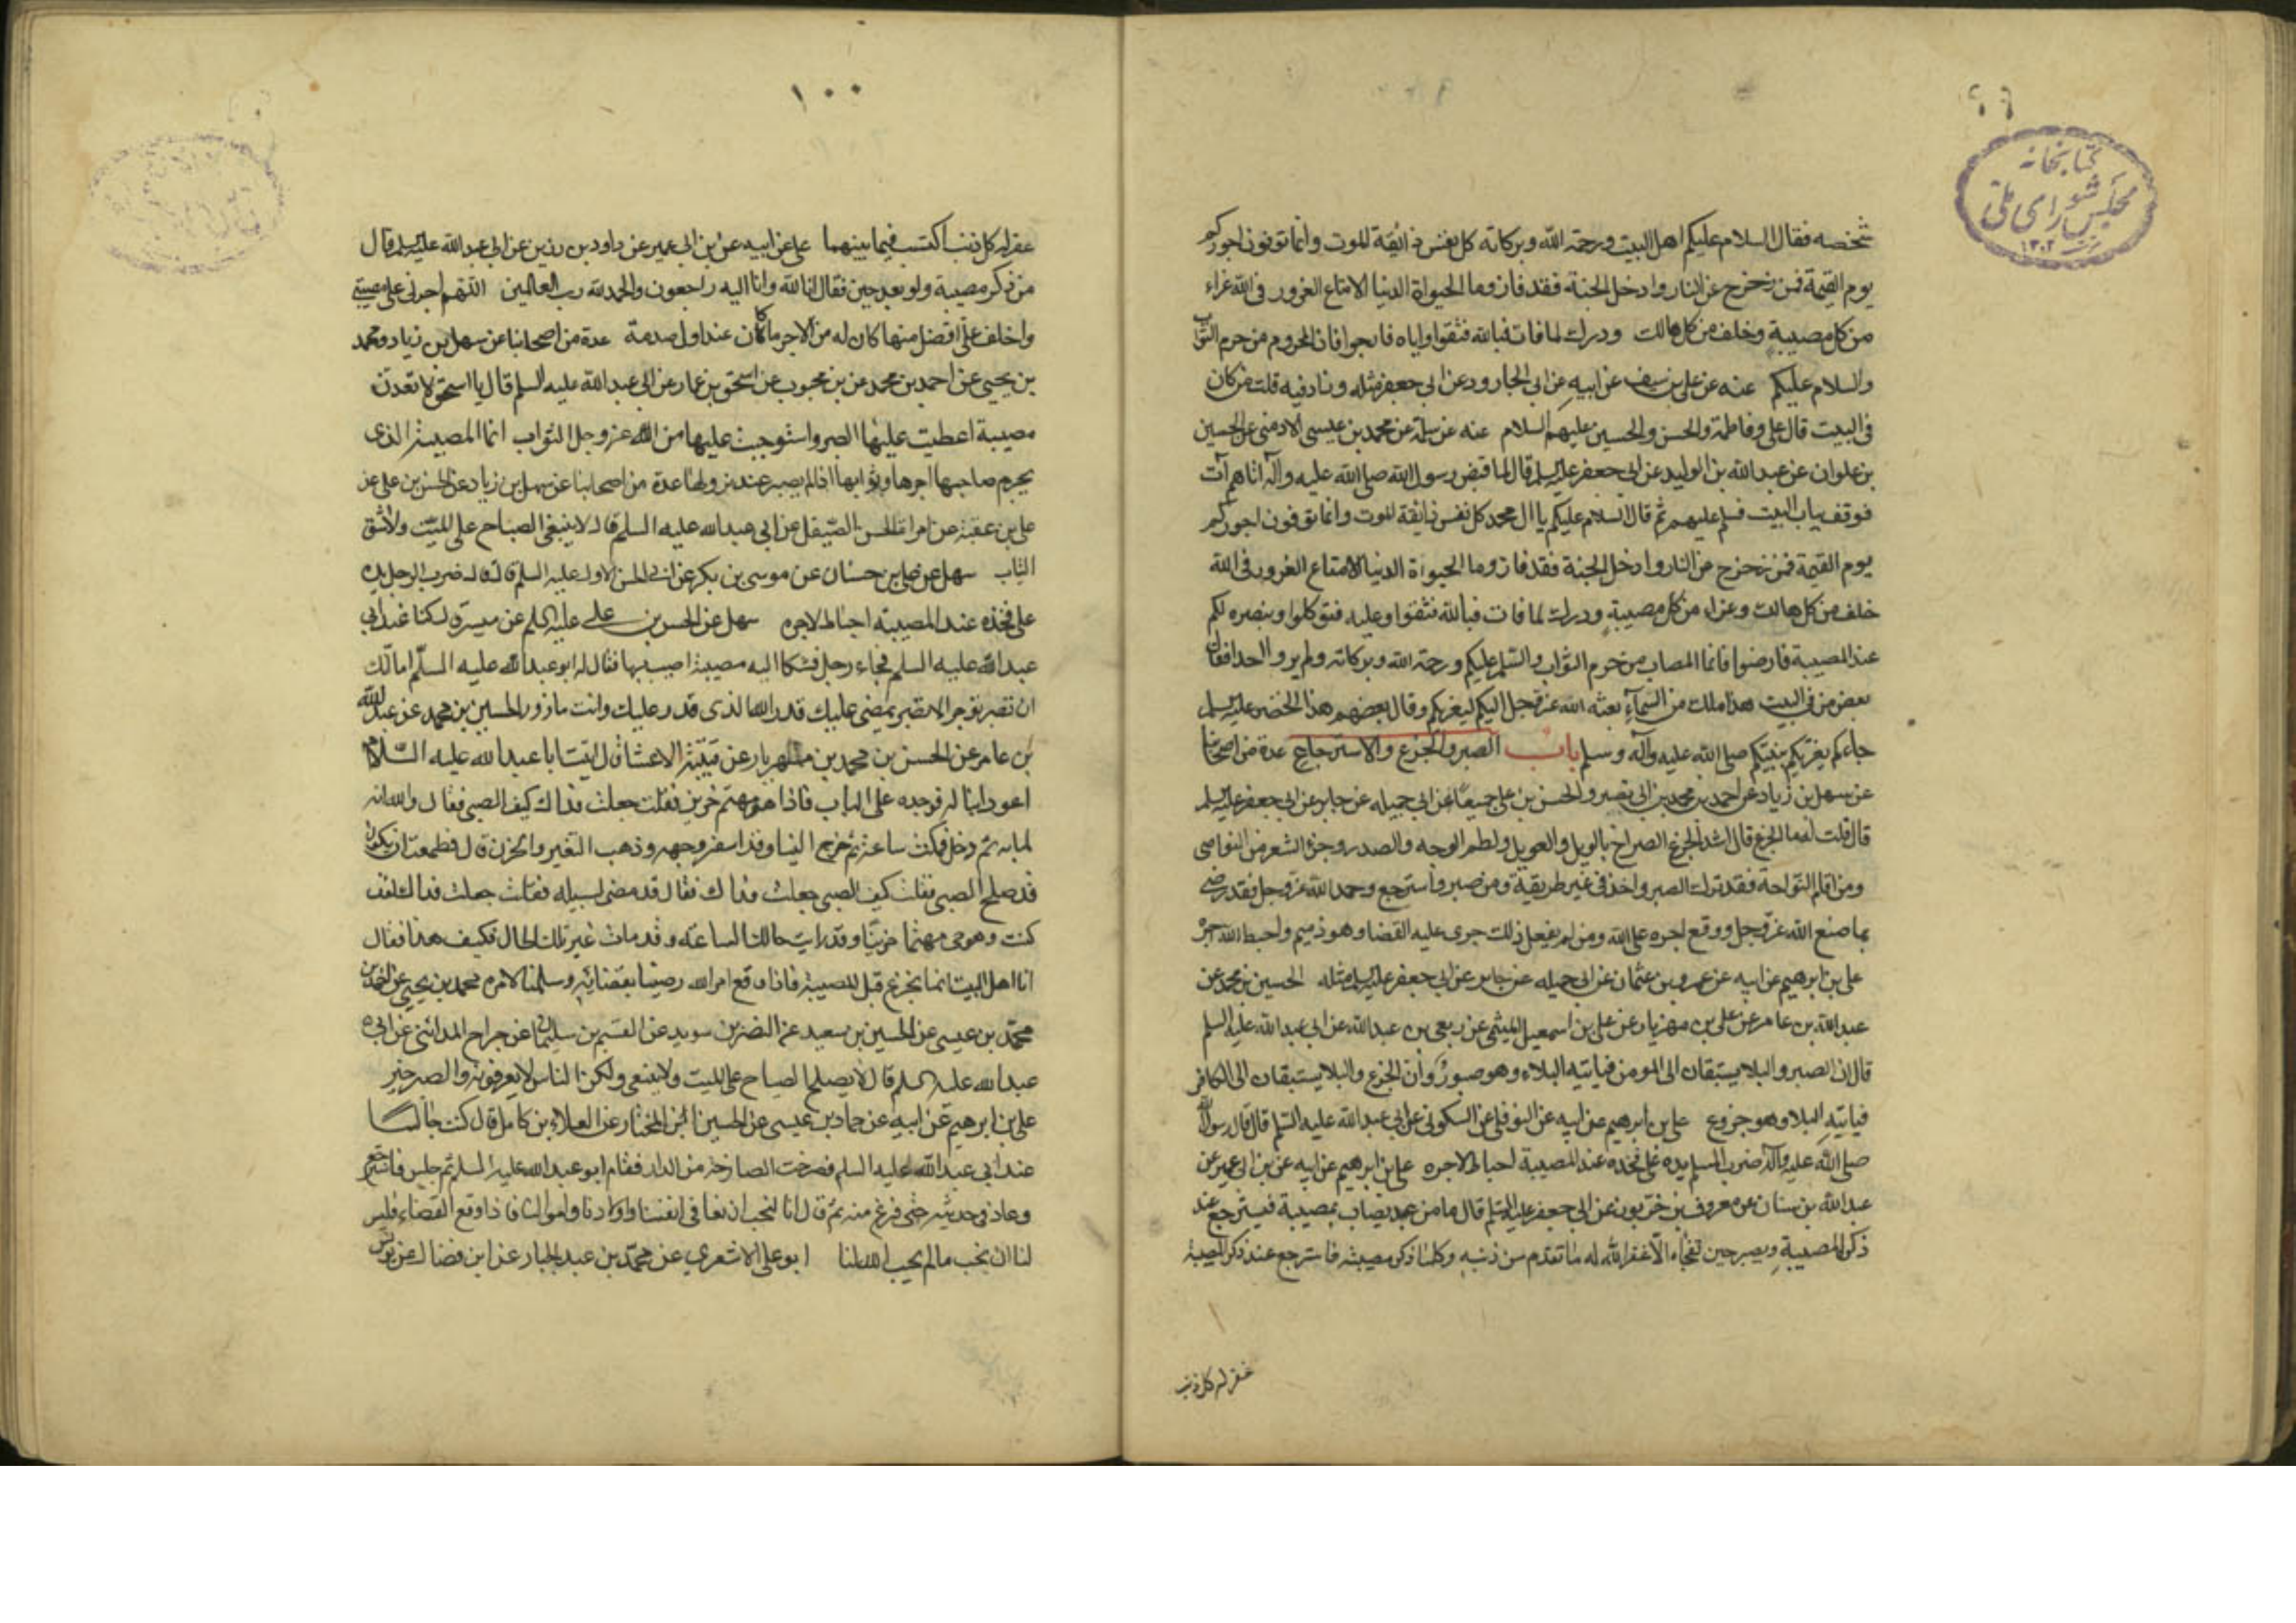 ٩٩
كتابخانه
مجلس شوراى ملى
١٣٠٢
شخصه فقال السلام عليكم اهل البيت ورحمة الله وبركاته كل نفس ذائقة الموت وانما توفون اجوركم
يوم القيمة فمن زحزح عن النار وادخل الجنة فقد فاز وما الحيوة الدنيا الا متاع الغرور في الله عزاء
من كل مصيبة وخلف من كل هالك ودرك لما فات فبالله فثقوا واياه فارجوا فان المحروم من حرم الثواب
والسلام عليكم عنه عن علي بن سيف عن ابيه عن ابي الجارود عن ابي جعفر مثله وزاد فيه قلت من كان
في البيت قال علي وفاطمة والحسن والحسين عليهم السلام عنه عن سلمة عن محمد بن عيسى الارمني عن الحسين
بن علوان عن عبد الله بن الوليد عن ابي جعفر عليه السلم قال لما قبض رسول الله صلى الله عليه وآله اتاهم آت
فوقف بباب البيت فسلم عليهم ثم قال السلام عليكم يا ال محمد كل نفس ذايقة الموت وانما توفون اجوركم
يوم القيمة فمن زحزح عن النار وادخل الجنة فقد فاز وما الحيوة الدنيا الا متاع الغرور في الله
خلف من كل هالك وعزاء من كل مصيبة ودرك لما فات فبالله فثقوا وعليه فتوكلوا وبنصره لكم
عند المصيبة فارضوا فانما المصاب من حرم الثواب والسلم عليكم ورحمة الله وبركاته ولم يروا احدا فقال
بعض من في البيت هذا ملك من السماء بعثه الله عز وجل اليكم ليعزيكم وقال بعضهم هذا الخضر عليه السلم
جاءكم يعزيكم بنبيكم صلى الله عليه وآله وسلم باب الصبر والجزع والاسترجاع عدة من اصحابنا
عن سهل بن زياد عن احمد بن محمد بن ابي نصر والحسن بن علي جميعا عن ابي جميله عن جابر عن ابي جعفر عليه السلم
قال قلت له ما الجزع قال اشد الجزع الصراخ بالويل والعويل ولطم الوجه والصدر وجز الشعر من النواصى
ومن اقام النواحة فقد ترك الصبر واخذ في غير طريقة ومن صبر واسترجع وحمد الله عز وجل فقد رضي
بما صنع الله عز وجل ووقع اجره على الله ومن لم يفعل ذلك جرى عليه القضا وهو ذميم واحبط الله اجره
علي بن ابرهيم عن ابيه عن عمرو بن عثمان عن ابي جميله عن جابر عن ابي جعفر عليه السلم مثله الحسين بن محمد عن
عبد الله بن عامر عن علي بن مهزيار عن علي بن اسمعيل الميثمي عن ربعي بن عبد الله عن ابي عبد الله عليه السلم
قال ان الصبر والبلا يستبقان الى المومن فياتيه البلاء وهو صبور وان الجزع والبلا يستبقان الى الكافر
فياتيه البلا وهو جزوع علي بن ابرهيم عن ابيه عن النوفلي عن السكوني عن ابي عبد الله عليه السلم قال قال رسول الله
صلى الله عليه وآله ضرب المسلم يده على فخذه عند المصيبة احباط لاجره علي بن ابرهيم عن ابيه عن بن ابي عمير عن
عبد الله بن سنان عن معروف بن خربوذ عن ابي جعفر عليه السلم قال ما من عبد يصاب بمصيبة فيسترجع عند
ذكر المصيبة ويصبر حين تفجاه الا غفر الله له ما تقدم من ذنبه وكلما ذكر مصيبته فاسترجع عند ذكر المصيبة
غفر له كل ذنب
١٠٠
غفر له كل ذنب اكتسب فيما بينهما علي عن ابيه عن بن ابي عمير عن داود بن رزين عن ابي عبد الله عليه السلم قال
من ذكر مصيبة ولو بعد حين فقال انا لله وانا اليه راجعون والحمد لله رب العالمين اللهم اجرني على مصيبتي
واخلف علي افضل منها كان له من الاجر ما كان عند اول صدمة عدة من اصحابنا عن سهل بن زياد ومحمد
بن يحيى عن احمد بن محمد عن بن محبوب عن اسحق بن عمار عن ابي عبد الله عليه السلم قال يا اسحق لا تعدن
مصيبة اعطيت عليها الصبر واستوجبت عليها من الله عز وجل الثواب انما المصيبة الذى
يحرم صاحبها اجرها وثوابها اذا لم يصبر عند نزولها عدة من اصحابنا عن سهل بن زياد عن الحسن بن علي عن
علي بن عقبة عن امراة الحسن الصيقل عن ابي عبد الله عليه السلم قال لا ينبغى الصياح على الميت ولا شق
الثياب سهل عن علي بن حسان عن موسى بن بكر عن ابي الحسن الاول عليه السلم قال قال ضرب الرجل يده
على فخذه عند المصيبة احباط لاجره سهل عن الحسن بن علي عليه السلم عن ميسرة قال كنا عند ابي
عبد الله عليه السلم فجاء رجل فشكا اليه مصيبة اصيب بها فقال له ابو عبد الله عليه السلم اما انك
ان تصبر توجر والا تصبر يمضي عليك قدر الله الذى قدر عليك وانت مازور الحسين بن محمد عن عبد الله
بن عامر عن الحسن بن محمد بن مهزيار عن قتيبة الاعشا قال اتيت ابا عبد الله عليه السلام
اعود ابنا له فوجدته على الباب فاذا هو مهتم حزين فقلت جعلت فداك كيف الصبي فقال والله انه
لما به ثم دخل فمكث ساعة ثم خرج الينا وقد اسفر وجهه وذهب التغير والحزن قال فطمعت ان يكون
قد صلح الصبي فقلت كيف الصبي جعلت فداك فقال قد مضى لسبيله فقلت جعلت فداك لقد
كنت وهو حي مهتما حزينا وقد رايت حالك الساعة وقد مات غير تلك الحال فكيف هذا فقال
انا اهل البيت انما نجزع قبل المصيبة فاذا وقع امر الله رضينا بقضائه وسلمنا لامره محمد بن يحيى عن احمد بن
محمد بن عيسى عن الحسين بن سعيد عن النضر بن سويد عن القسم بن سليمان عن جراح المدائني عن ابي
عبد الله عليه السلم قال لا يصلح الصياح على الميت ولا ينبغى ولكن الناس لا يعرفونه والصبر خير
علي بن ابرهيم عن ابيه عن حماد بن عيسى عن الحسين بن المختار عن العلاء بن كامل قال كنت جالسا
عند ابي عبد الله عليه السلم فصرخت الصارخة من الدار فقام ابو عبد الله عليه السلم ثم جلس فاسترجع
وعاد في حديثه حتى فرغ منه ثم قال انا لنحب ان نعافى في انفسنا واولادنا واموالنا فاذا وقع القضاء فليس
لنا ان نحب ما لم يحب الله لنا ابو علي الاشعري عن محمد بن عبد الجبار عن ابن فضال عن يونس